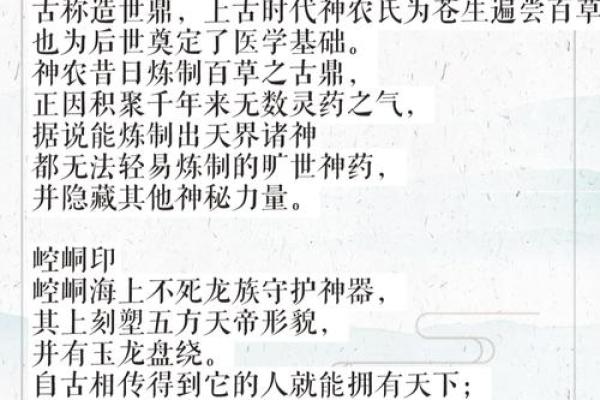 古称造世鼎，上古时代神农氏为苍生遍尝百草
也为后世奠定了医学基础。
神农昔日炼制百草之古鼎，
正因积聚千年来无数灵药之气，
据说能炼制出天界诸神
都无法轻易炼制的旷世神药，
并隐藏其他神秘力量。
崆峒印
崆峒海上不死龙族守护神器，
其上刻塑五方天帝形貌，
并有玉龙盘绕。
自古相传得到它的人就能拥有天下；